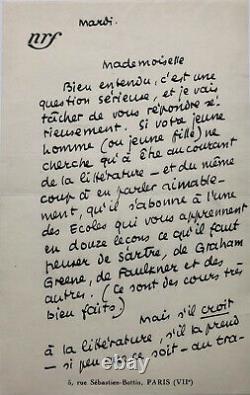 mardi.
nrf
Mademoiselle
Bien entendu, c'est une
question sérieuse, et je vais
tâcher de vous répondre sé-
rieusement. Si votre jeune
homme (ou jeune fille) ne
cherche qu'à être au courant
de la littérature – et du même
coup à en parler aimable-
ment, qu'il s'abonne à l'une
des Ecoles qui vous apprennent
en douze leçons ce qu'il faut
penser de Sartre, de Graham
Greene, de Faulkner et des
autres. (Ce sont des cours très
bien faits.)
Mais s'il croit
à la littérature, s'il la prend
– si peu que ce soit – au tra-
5, rue Sébastien-Bottin, PARIS (VIIe)